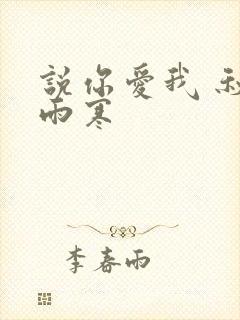 說你愛我
雨寒
李春雨